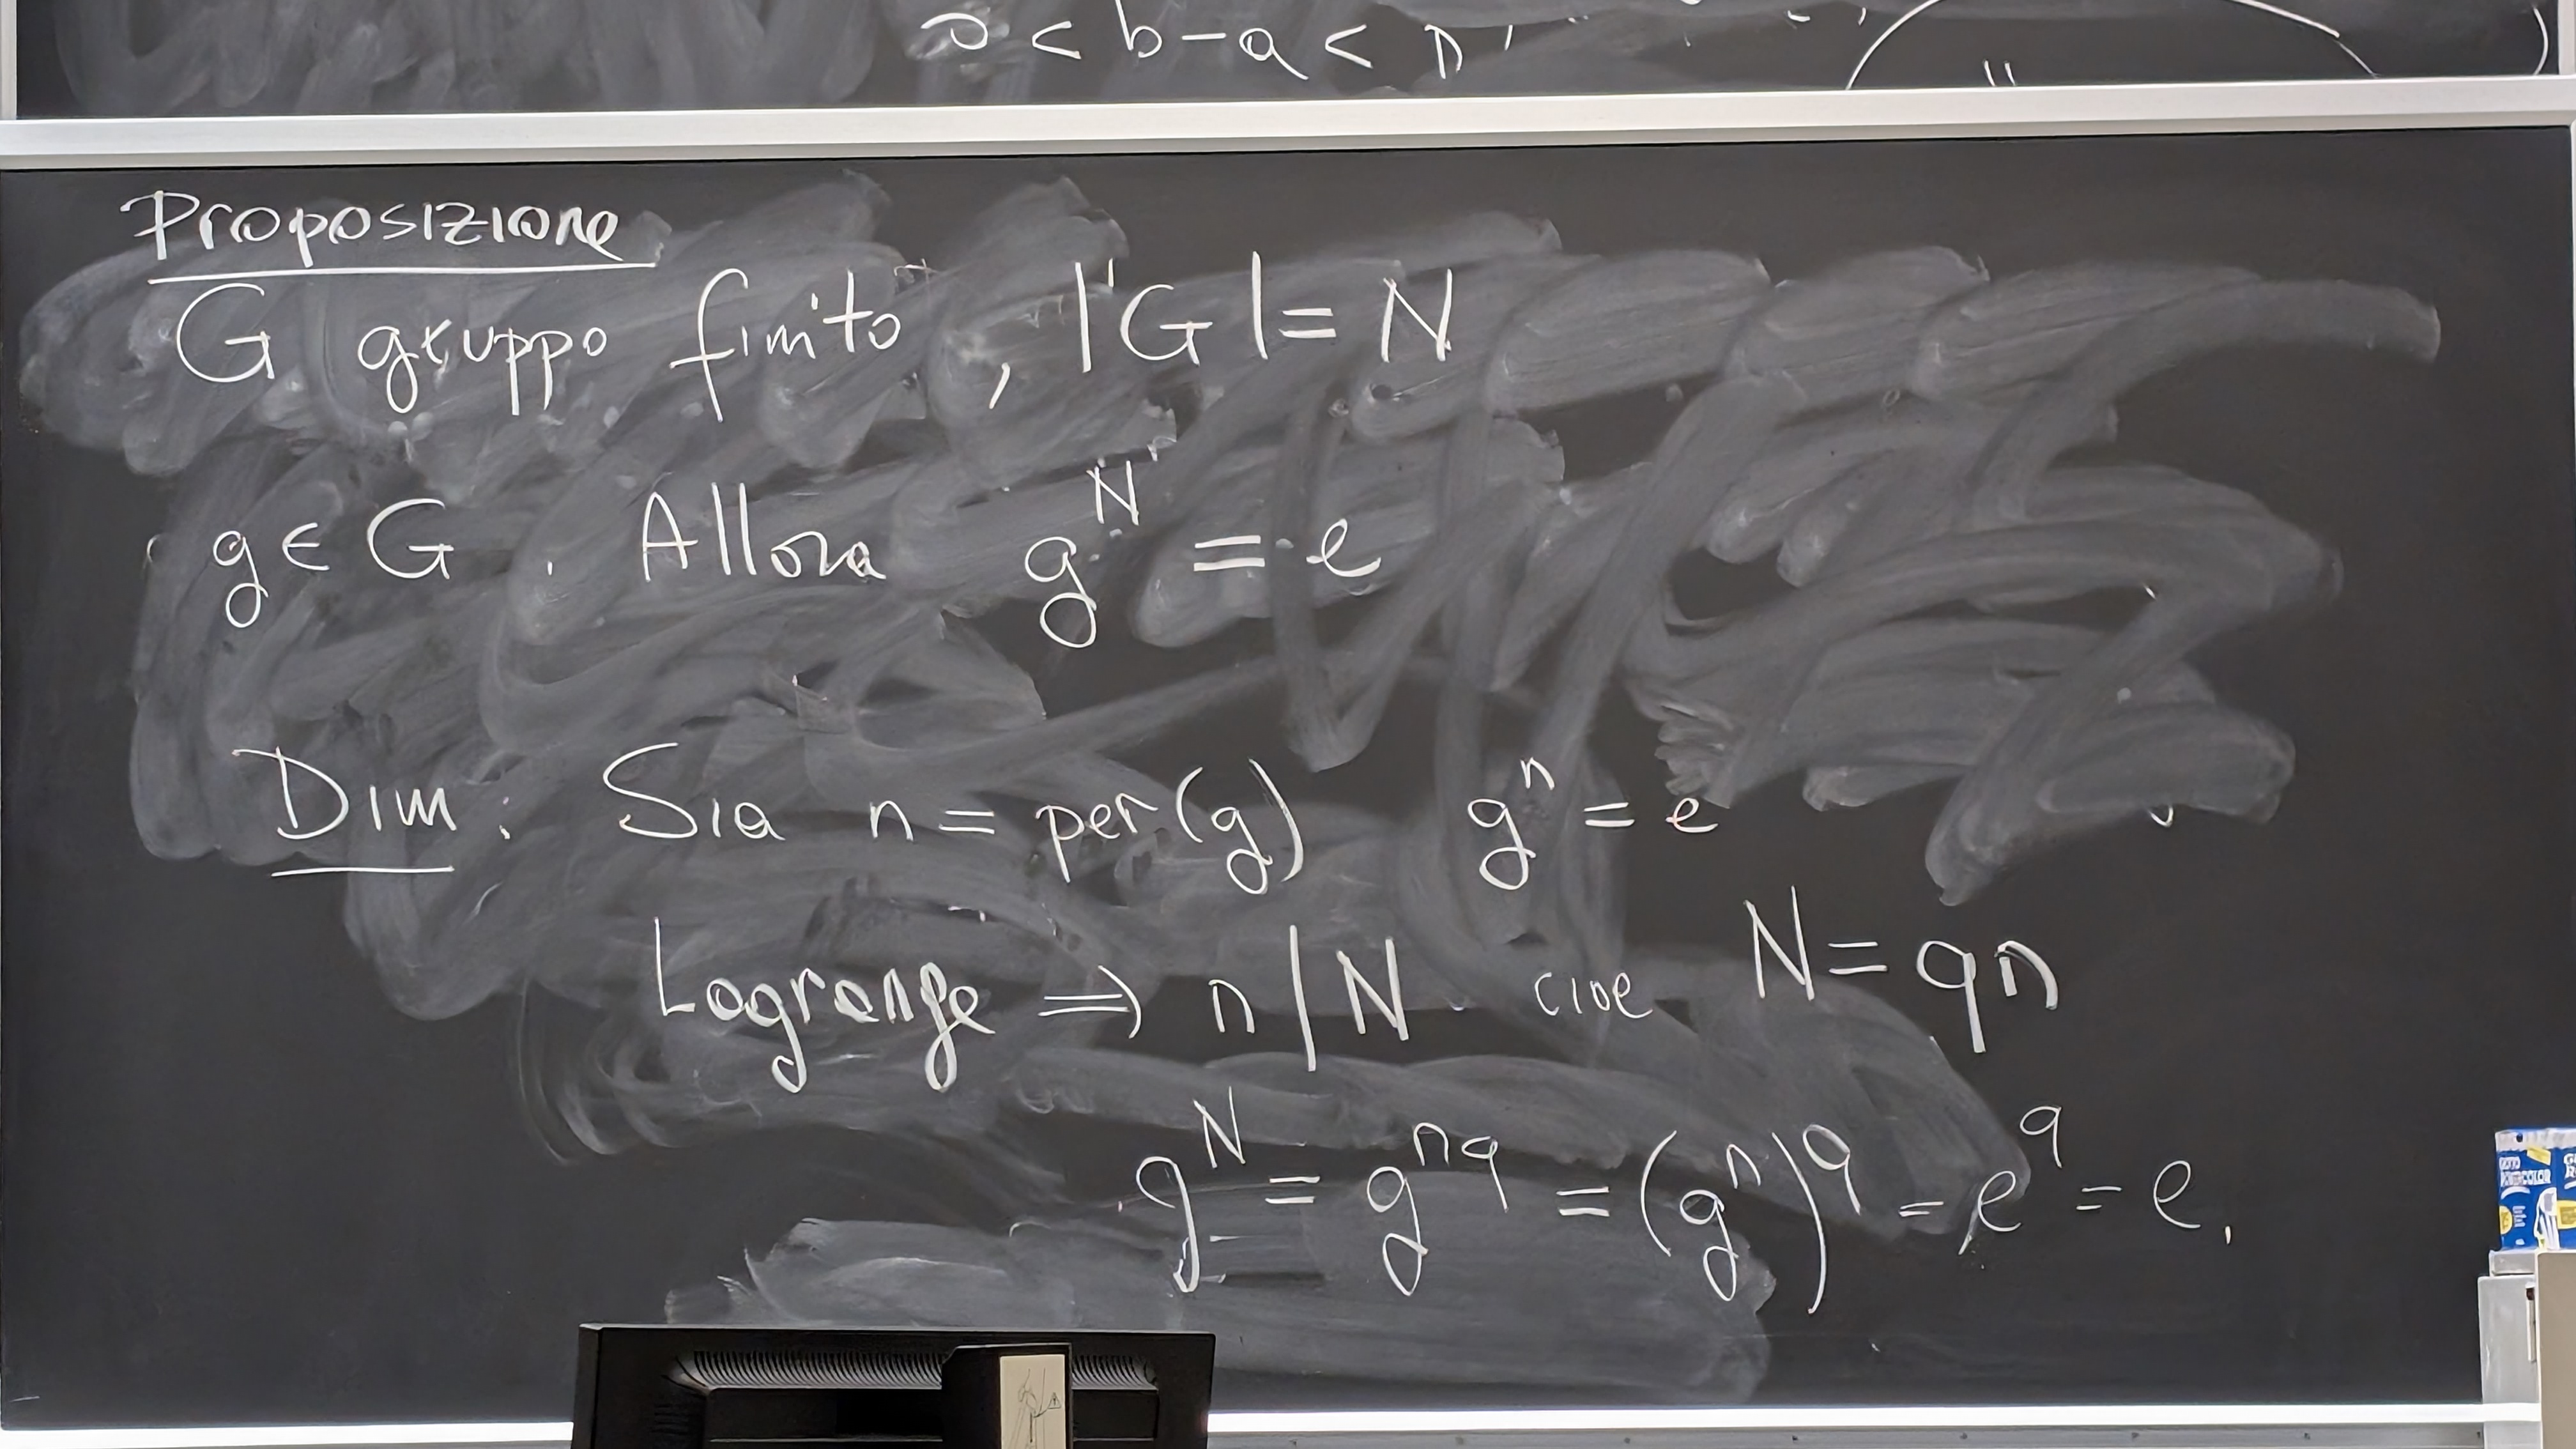 0 < b-a < n
Proposizione
G gruppo finito, |G| = N
g ∈ G. Allora g^N = e
Dim: Sia n = per(g) g^n = e
Lagrange ⇒ n | N cioe N = qn
g^N = g^nq = (g^n)^q = e^q = e.